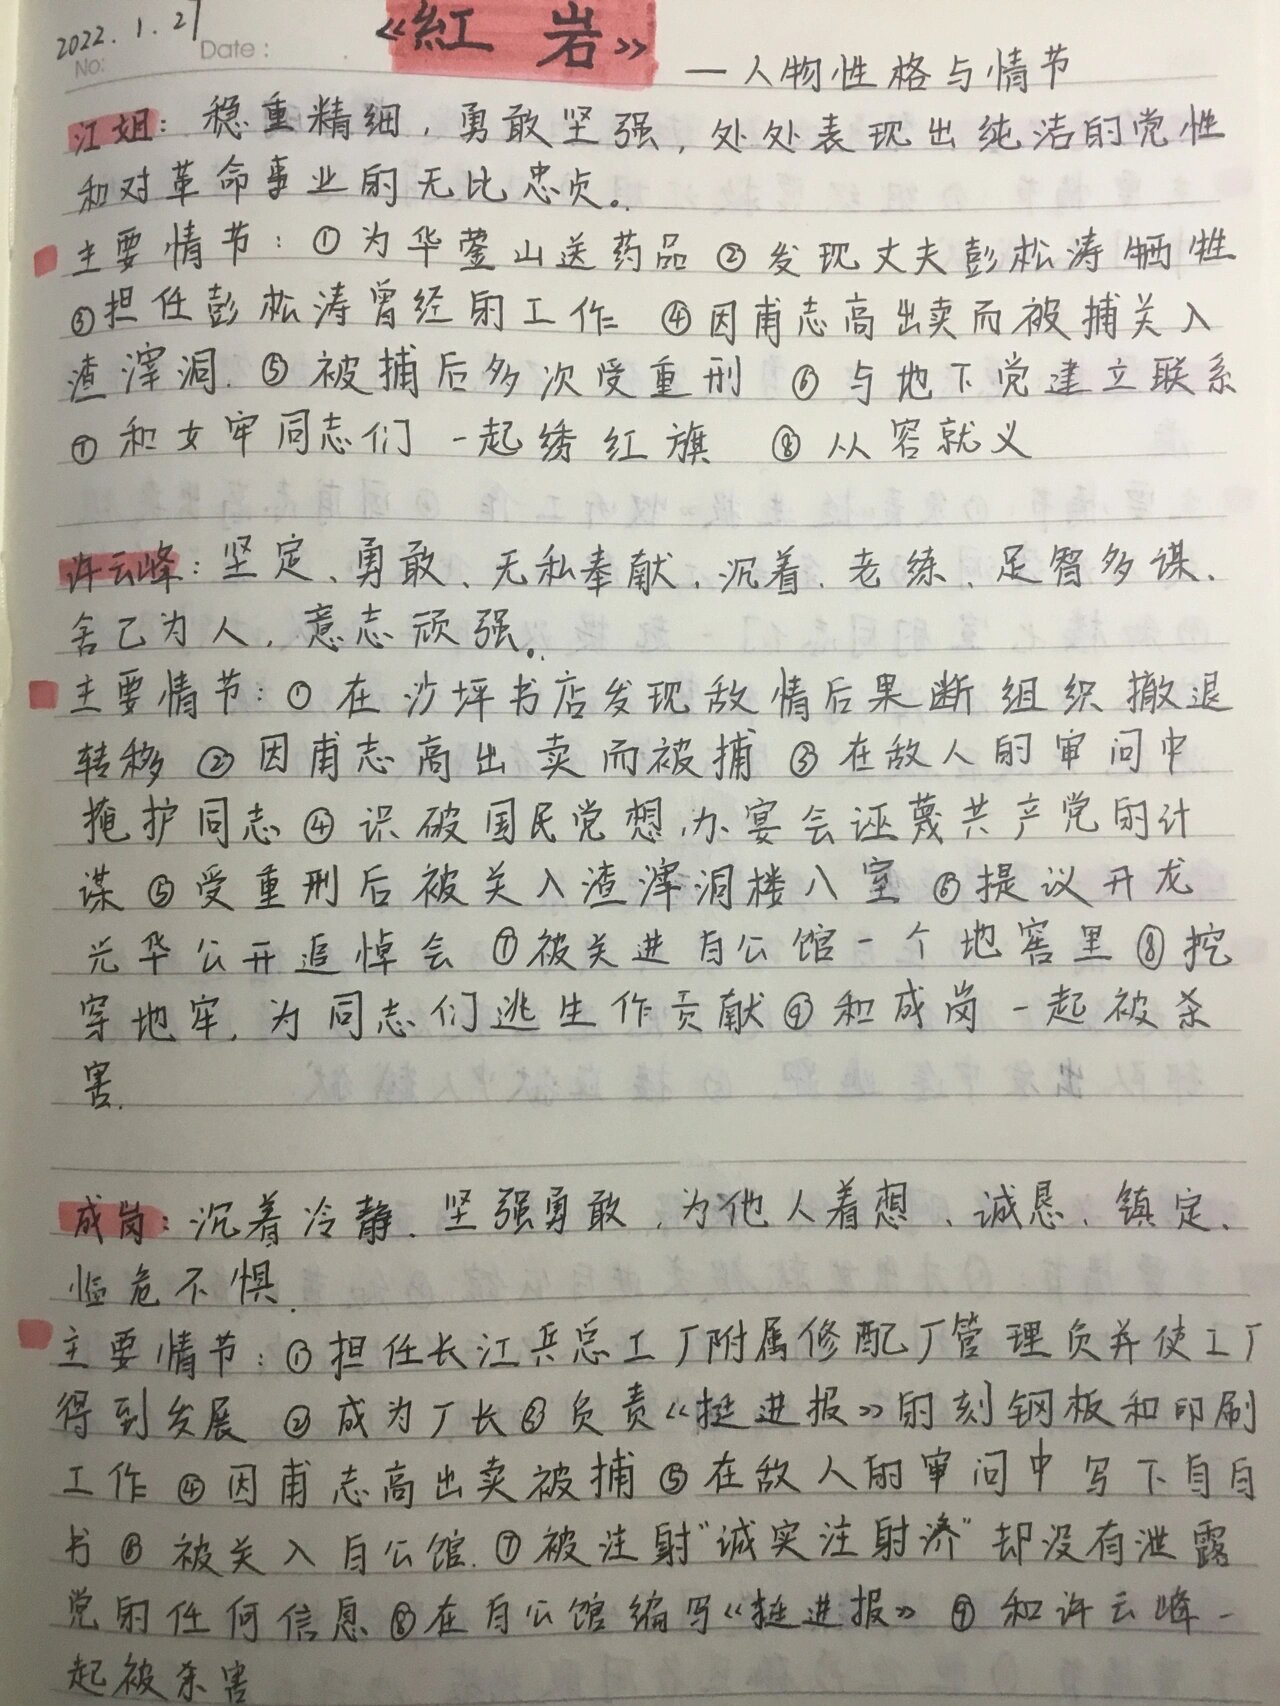 2022.1.27
No:
Date:
《紅岩》
—人物性格与情节
江姐：稳重精细，勇敢坚强，处处表现出纯洁的党性
和对革命事业的无比忠贞。
主要情节：①为华蓥山送药品 ②发现丈夫彭松涛牺牲
③担任彭松涛曾经的工作 ④因甫志高出卖而被捕关入
渣滓洞. ⑤被捕后多次受重刑 ⑥与地下党建立联系
⑦和女牢同志们一起绣红旗 ⑧从容就义
许云峰：坚定、勇敢、无私奉献、沉着、老练、足智多谋、
舍己为人，意志顽强。
主要情节：①在沙坪书店发现敌情后果断组织撤退
转移 ②因甫志高出卖而被捕 ③在敌人的审问中
掩护同志 ④识破国民党想办宴会诬蔑共产党的计
谋 ⑤受重刑后被关入渣滓洞楼八室 ⑥提议开龙
光华公开追悼会 ⑦被关进白公馆一个地窖里 ⑧挖
穿地牢，为同志们逃生作贡献 ⑨和成岗一起被杀
害.
成岗：沉着冷静、坚强勇敢、为他人着想、诚恳、镇定、
临危不惧.
主要情节：①担任长江兵总工厂附属修配厂管理员并使工厂
得到发展 ②成为厂长 ③负责《挺进报》的刻钢板和印刷
工作 ④因甫志高出卖被捕 ⑤在敌人的审问中写下自白
书 ⑥被关入白公馆. ⑦被注射"诚实注射济"却没有泄露
党的任何信息 ⑧在白公馆编写《挺进报》 ⑨和许云峰一
起被杀害